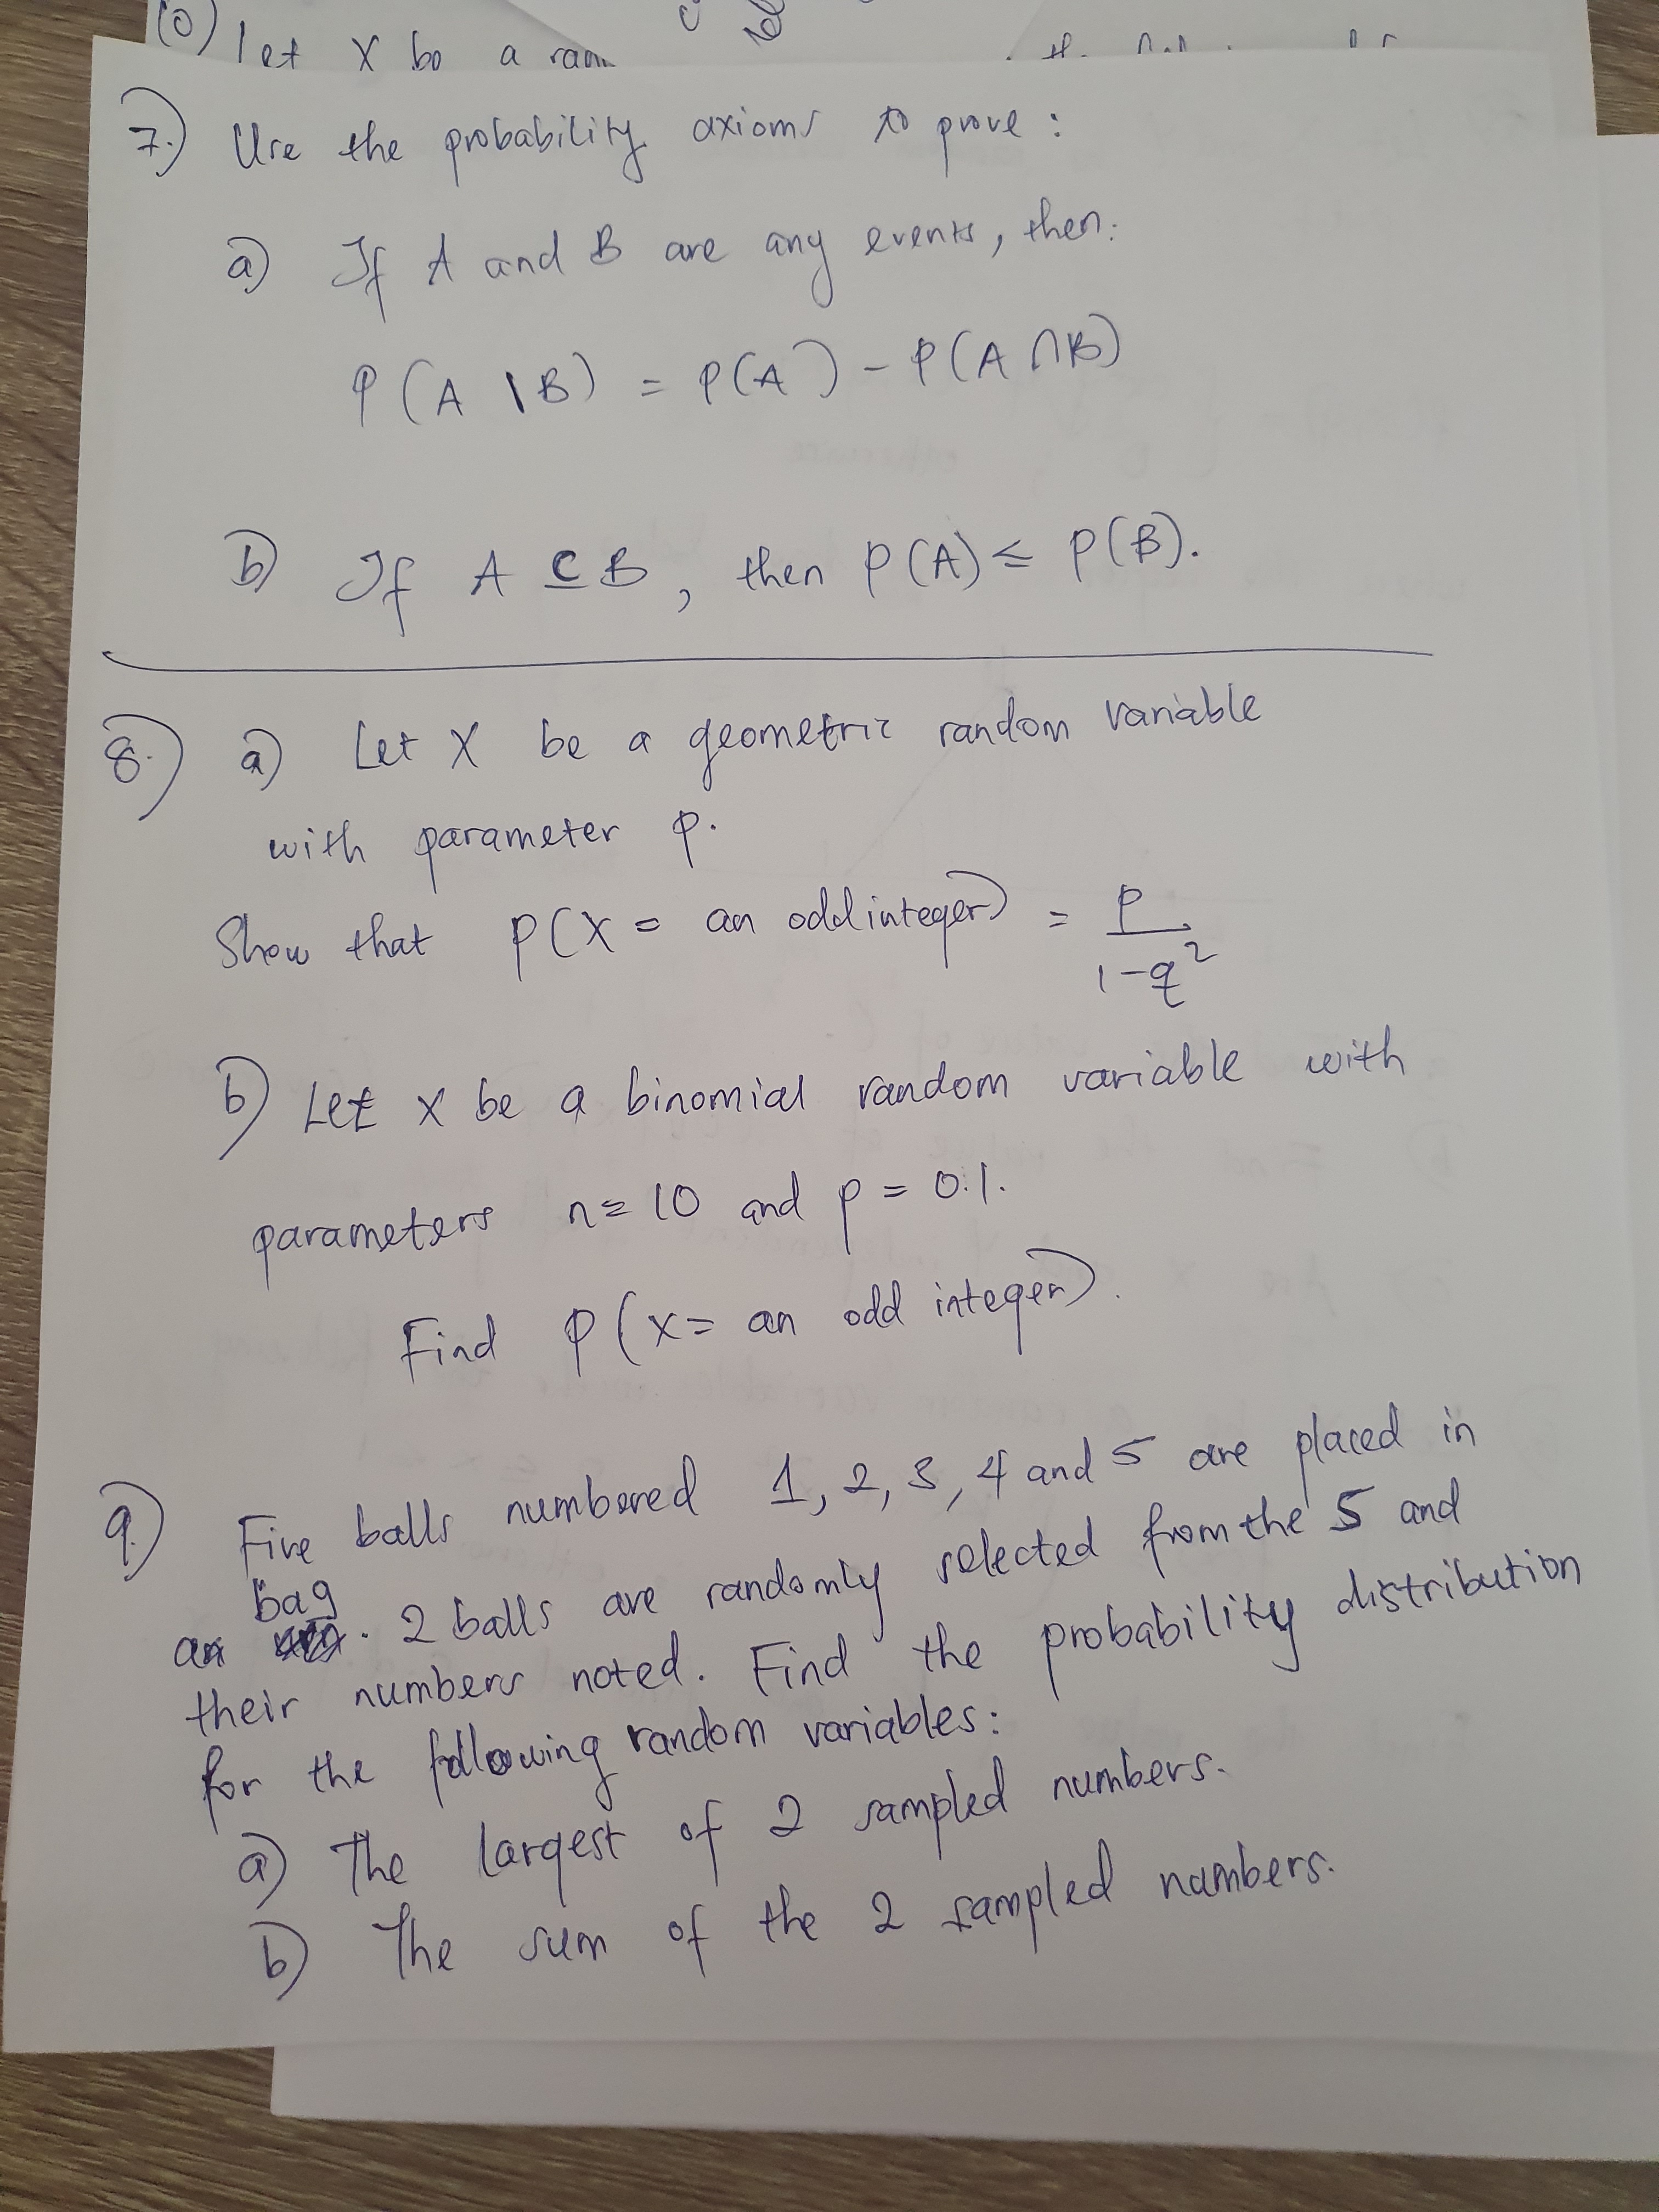 (0) let X be a ran
7.) Use the probability axioms to prove :
a) If A and B are any events, then:
P (A \ B) = P(A) - P(A ∩ B)
b) If A ⊆ B, then P(A) ≤ P(B).
8.) a) Let X be a geometric random variable
with parameter p.
Show that P(X = an odd integer) = p / 1-q²
b) Let X be a binomial random variable with
parameters n = 10 and p = 0.1.
Find P(X = an odd integer).
9.) Five balls numbered 1, 2, 3, 4 and 5 are placed in
a bag. 2 balls are randomly selected from the 5 and
their numbers noted. Find the probability distribution
for the following random variables:
a) The largest of 2 sampled numbers.
b) The sum of the 2 sampled numbers.